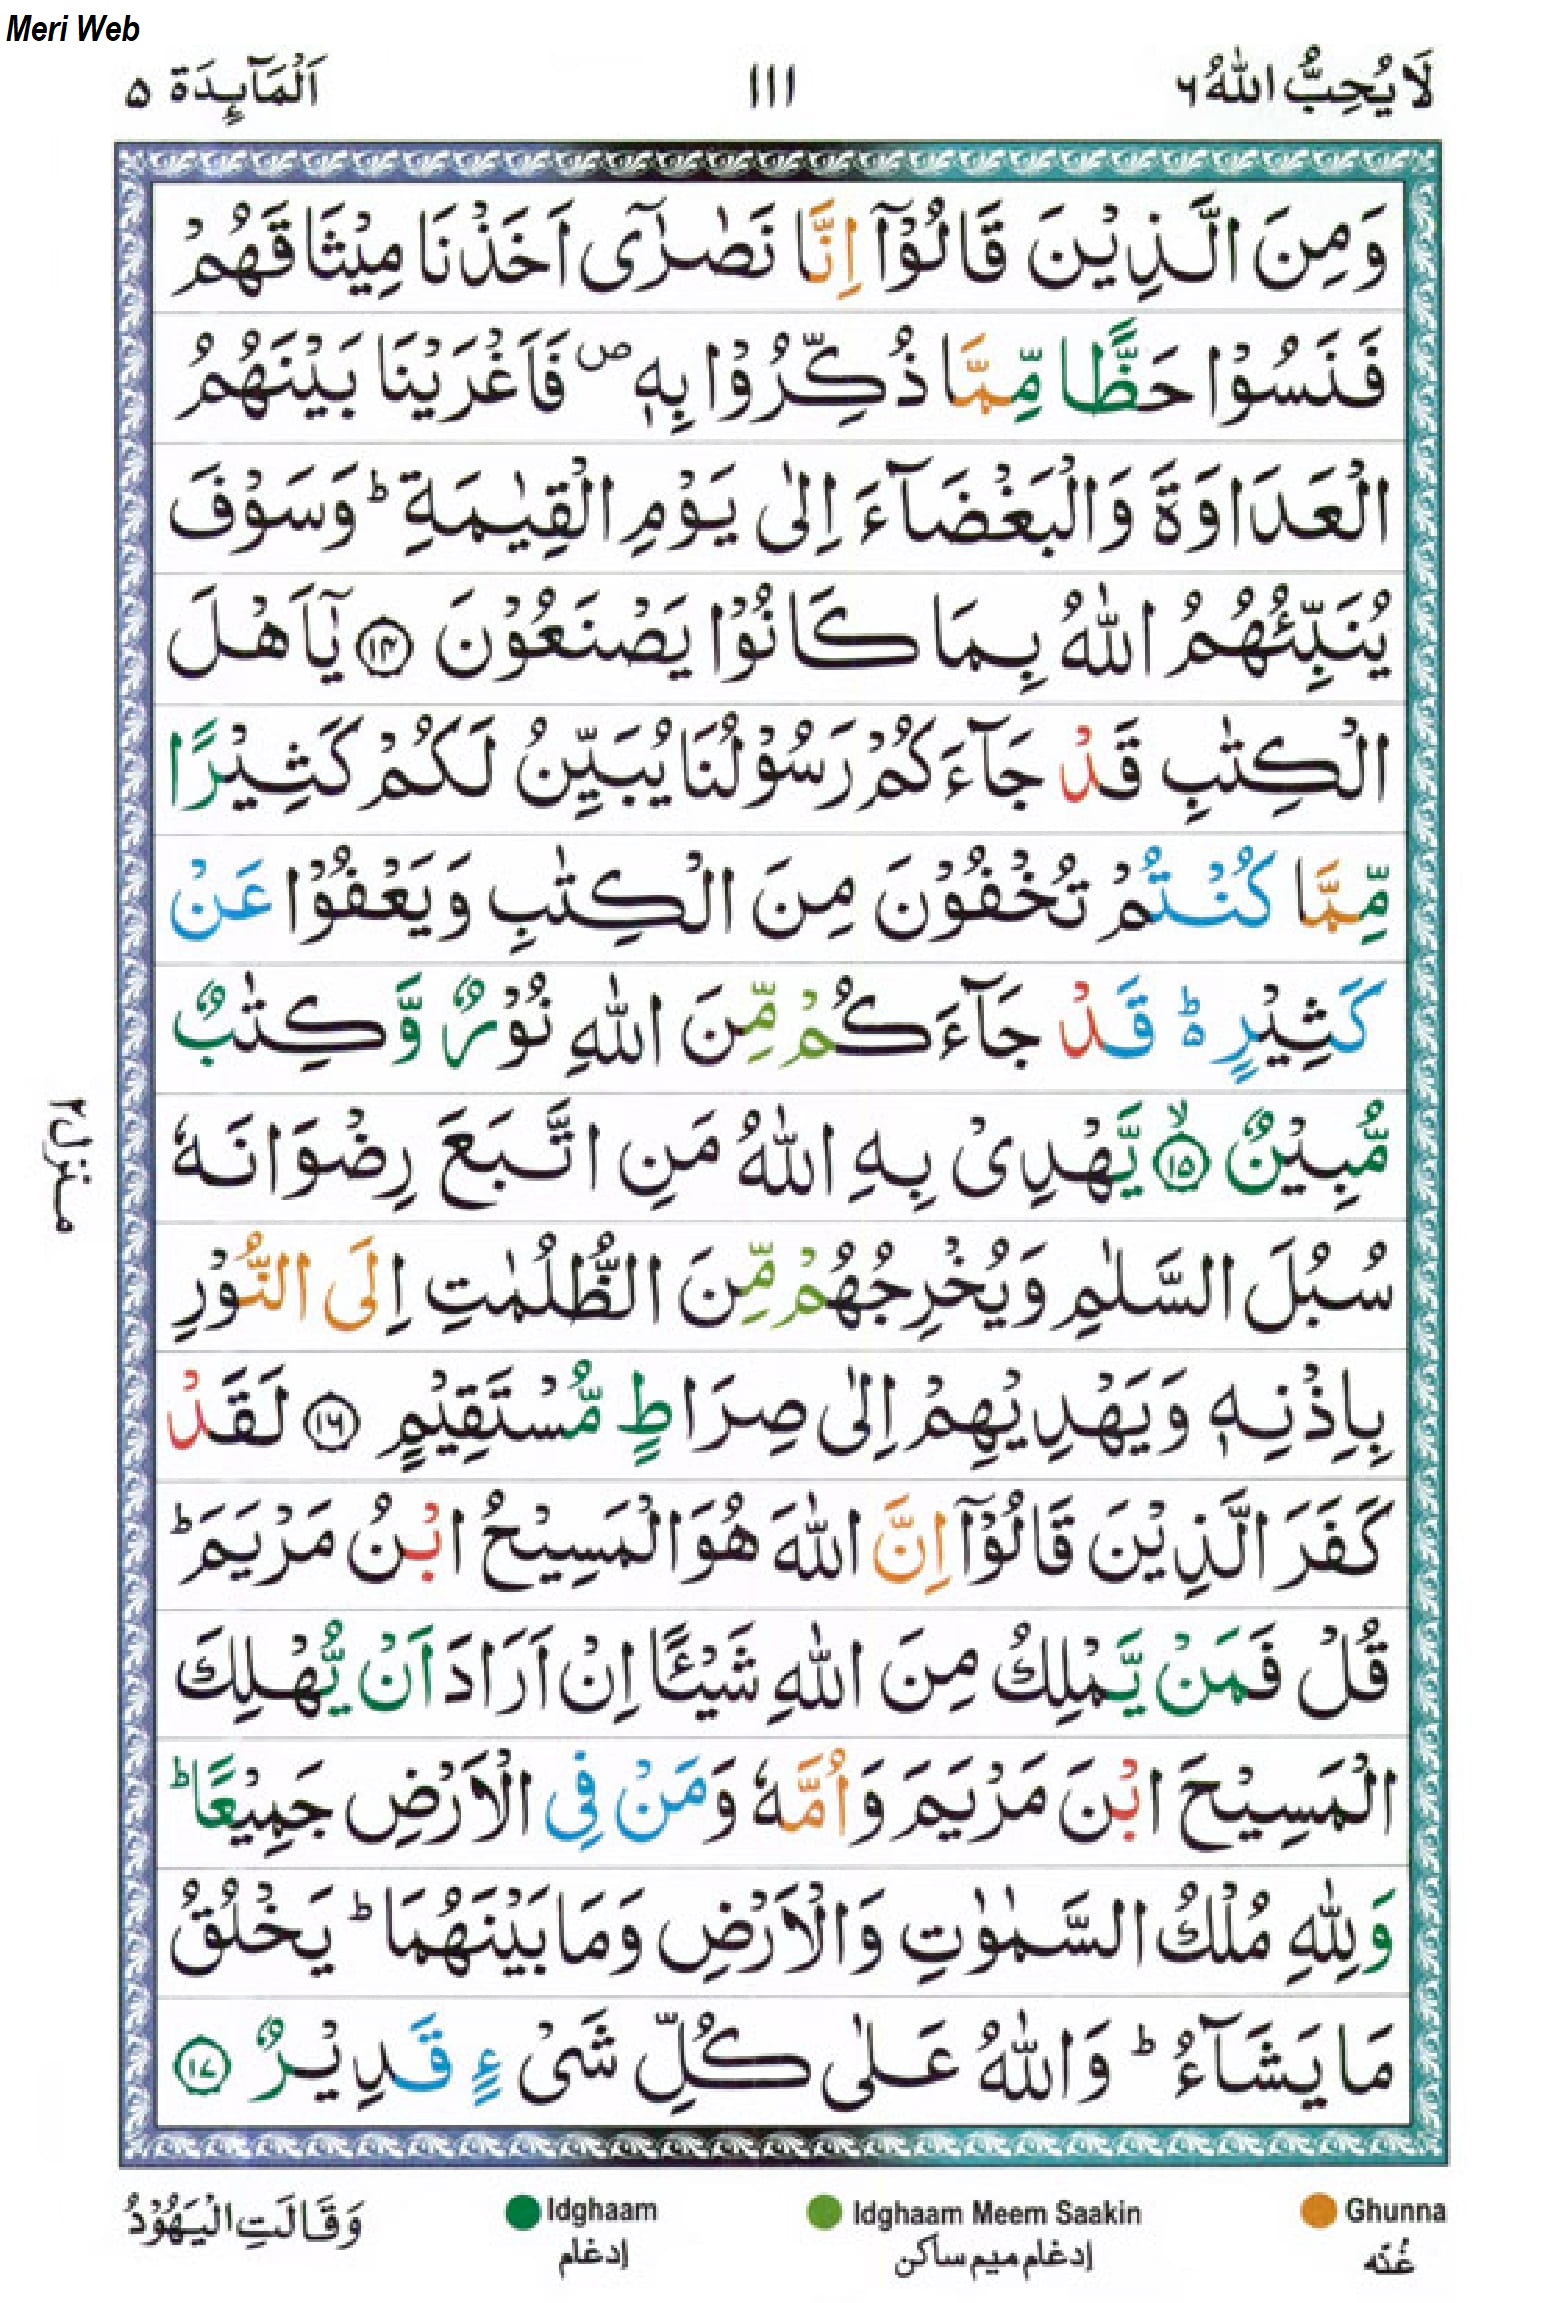 Meri Web
لَا يُحِبُّ اللّٰهُ ۶ ۱۱۱ اَلْمَآئِدَة ۵
وَمِنَ الَّذِيْنَ قَالُوْٓا اِنَّا نَصٰرٰٓى اَخَذْنَا مِيْثَاقَهُمْ
فَنَسُوْا حَظًّا مِّمَّا ذُكِّرُوْا بِهٖ ۪ فَاَغْرَيْنَا بَيْنَهُمُ
الْعَدَاوَةَ وَالْبَغْضَآءَ اِلٰى يَوْمِ الْقِيٰمَةِ ؕ وَسَوْفَ
يُنَبِّئُهُمُ اللّٰهُ بِمَا كَانُوْا يَصْنَعُوْنَ ﴿۱۴﴾ يٰٓاَهْلَ
الْكِتٰبِ قَدْ جَآءَكُمْ رَسُوْلُنَا يُبَيِّنُ لَكُمْ كَثِيْرًا
مِّمَّا كُنْتُمْ تُخْفُوْنَ مِنَ الْكِتٰبِ وَيَعْفُوْا عَنْ
كَثِيْرٍ ؕ۬ قَدْ جَآءَكُمْ مِّنَ اللّٰهِ نُوْرٌ وَّكِتٰبٌ
مُّبِيْنٌ ﴿ۙ۱۵﴾ يَّهْدِىْ بِهِ اللّٰهُ مَنِ اتَّبَعَ رِضْوَانَهٗ
سُبُلَ السَّلٰمِ وَيُخْرِجُهُمْ مِّنَ الظُّلُمٰتِ اِلَى النُّوْرِ
بِاِذْنِهٖ وَيَهْدِيْهِمْ اِلٰى صِرَاطٍ مُّسْتَقِيْمٍ ﴿۱۶﴾ لَقَدْ
كَفَرَ الَّذِيْنَ قَالُوْٓا اِنَّ اللّٰهَ هُوَ الْمَسِيْحُ ابْنُ مَرْيَمَ ؕ
قُلْ فَمَنْ يَّمْلِكُ مِنَ اللّٰهِ شَيْـًٔا اِنْ اَرَادَ اَنْ يُّهْلِكَ
الْمَسِيْحَ ابْنَ مَرْيَمَ وَاُمَّهٗ وَمَنْ فِى الْاَرْضِ جَمِيْعًا ؕ
وَلِلّٰهِ مُلْكُ السَّمٰوٰتِ وَالْاَرْضِ وَمَا بَيْنَهُمَا ؕ يَخْلُقُ
مَا يَشَآءُ ؕ وَاللّٰهُ عَلٰى كُلِّ شَىْءٍ قَدِيْرٌ ﴿۱۷﴾
منزل ۲
Ghunna Idghaam Meem Saakin Idghaam وَقَالَتِ الْيَهُوْدُ
غُنّه إدغام ميم ساكن إدغام